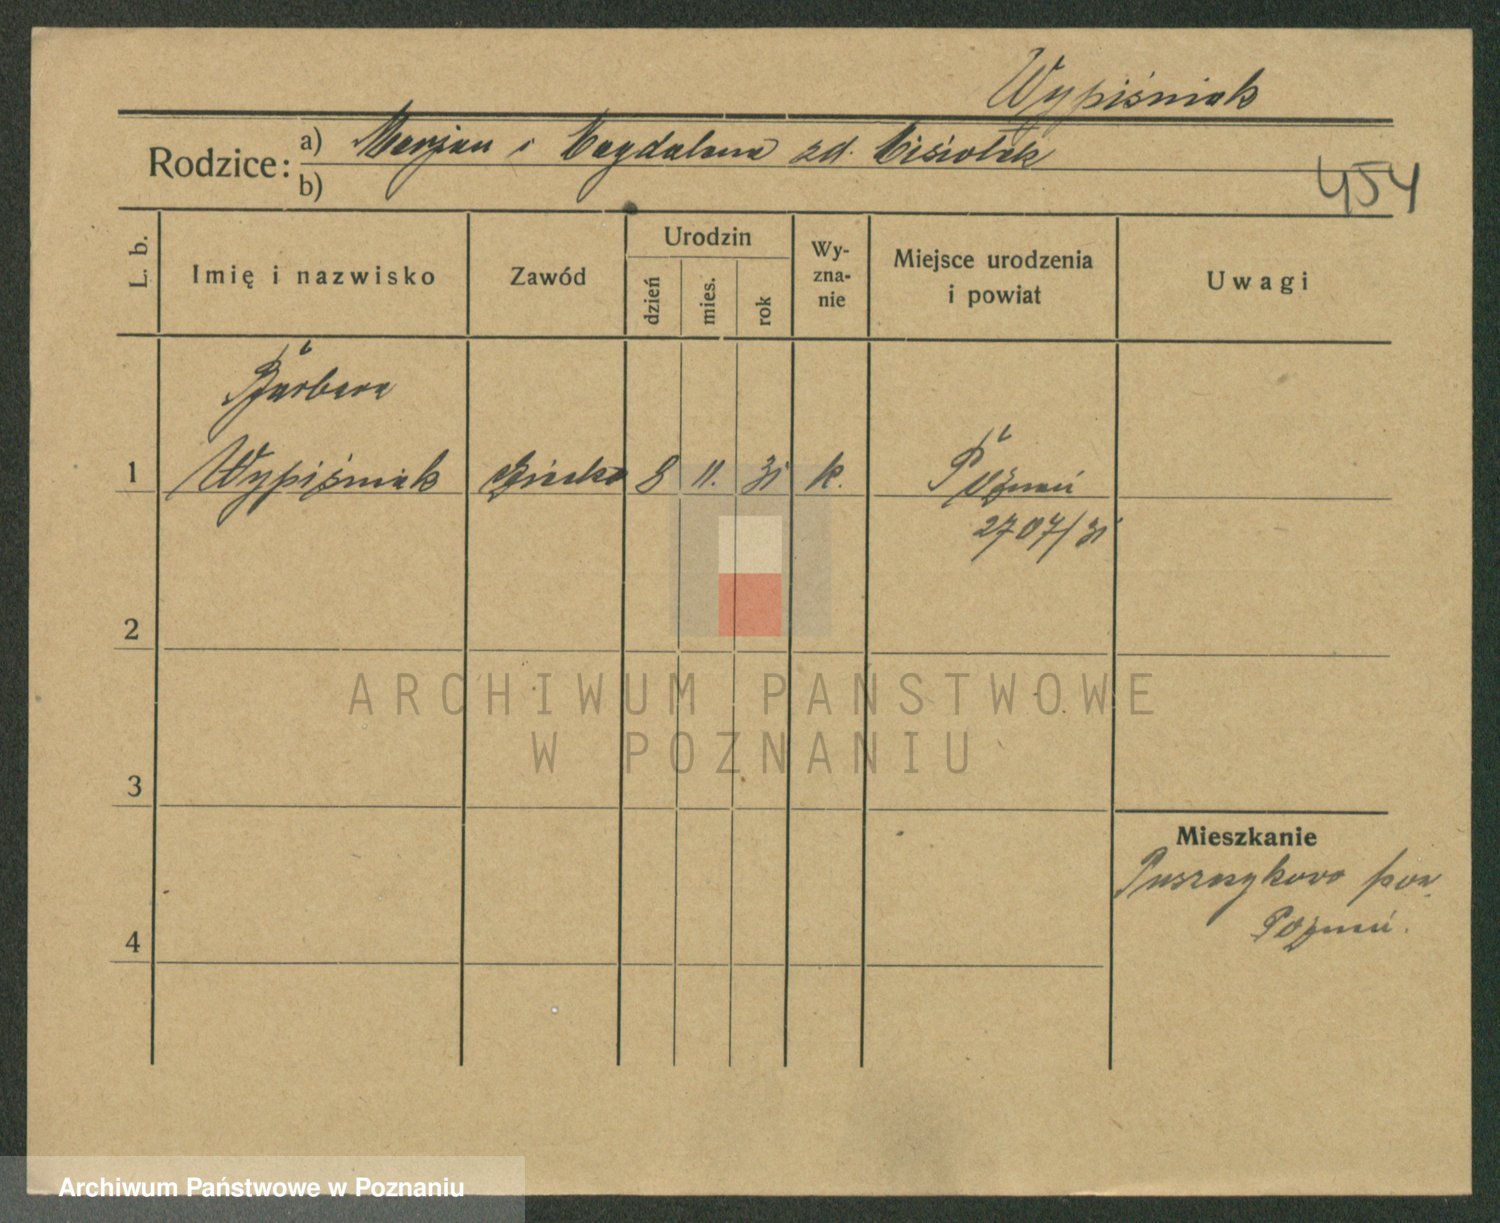 Wypiśniak
Rodzice: a) Marjan i Magdalena zd. Misiołek
b)
454
L. b.
Imię i nazwisko
Zawód
Urodzin
dzień
mies.
rok
Wy-
zna-
nie
Miejsce urodzenia
i powiat
Uwagi
Barbara
1 Wypiśniak dziecko 8 11. 31 k. Poznań
2707/31
2
3
4
Mieszkanie
Puszczykowo pow.
Poznań.
ARCHIWUM PAŃSTWOWE
W POZNANIU
Archiwum Państwowe w Poznaniu